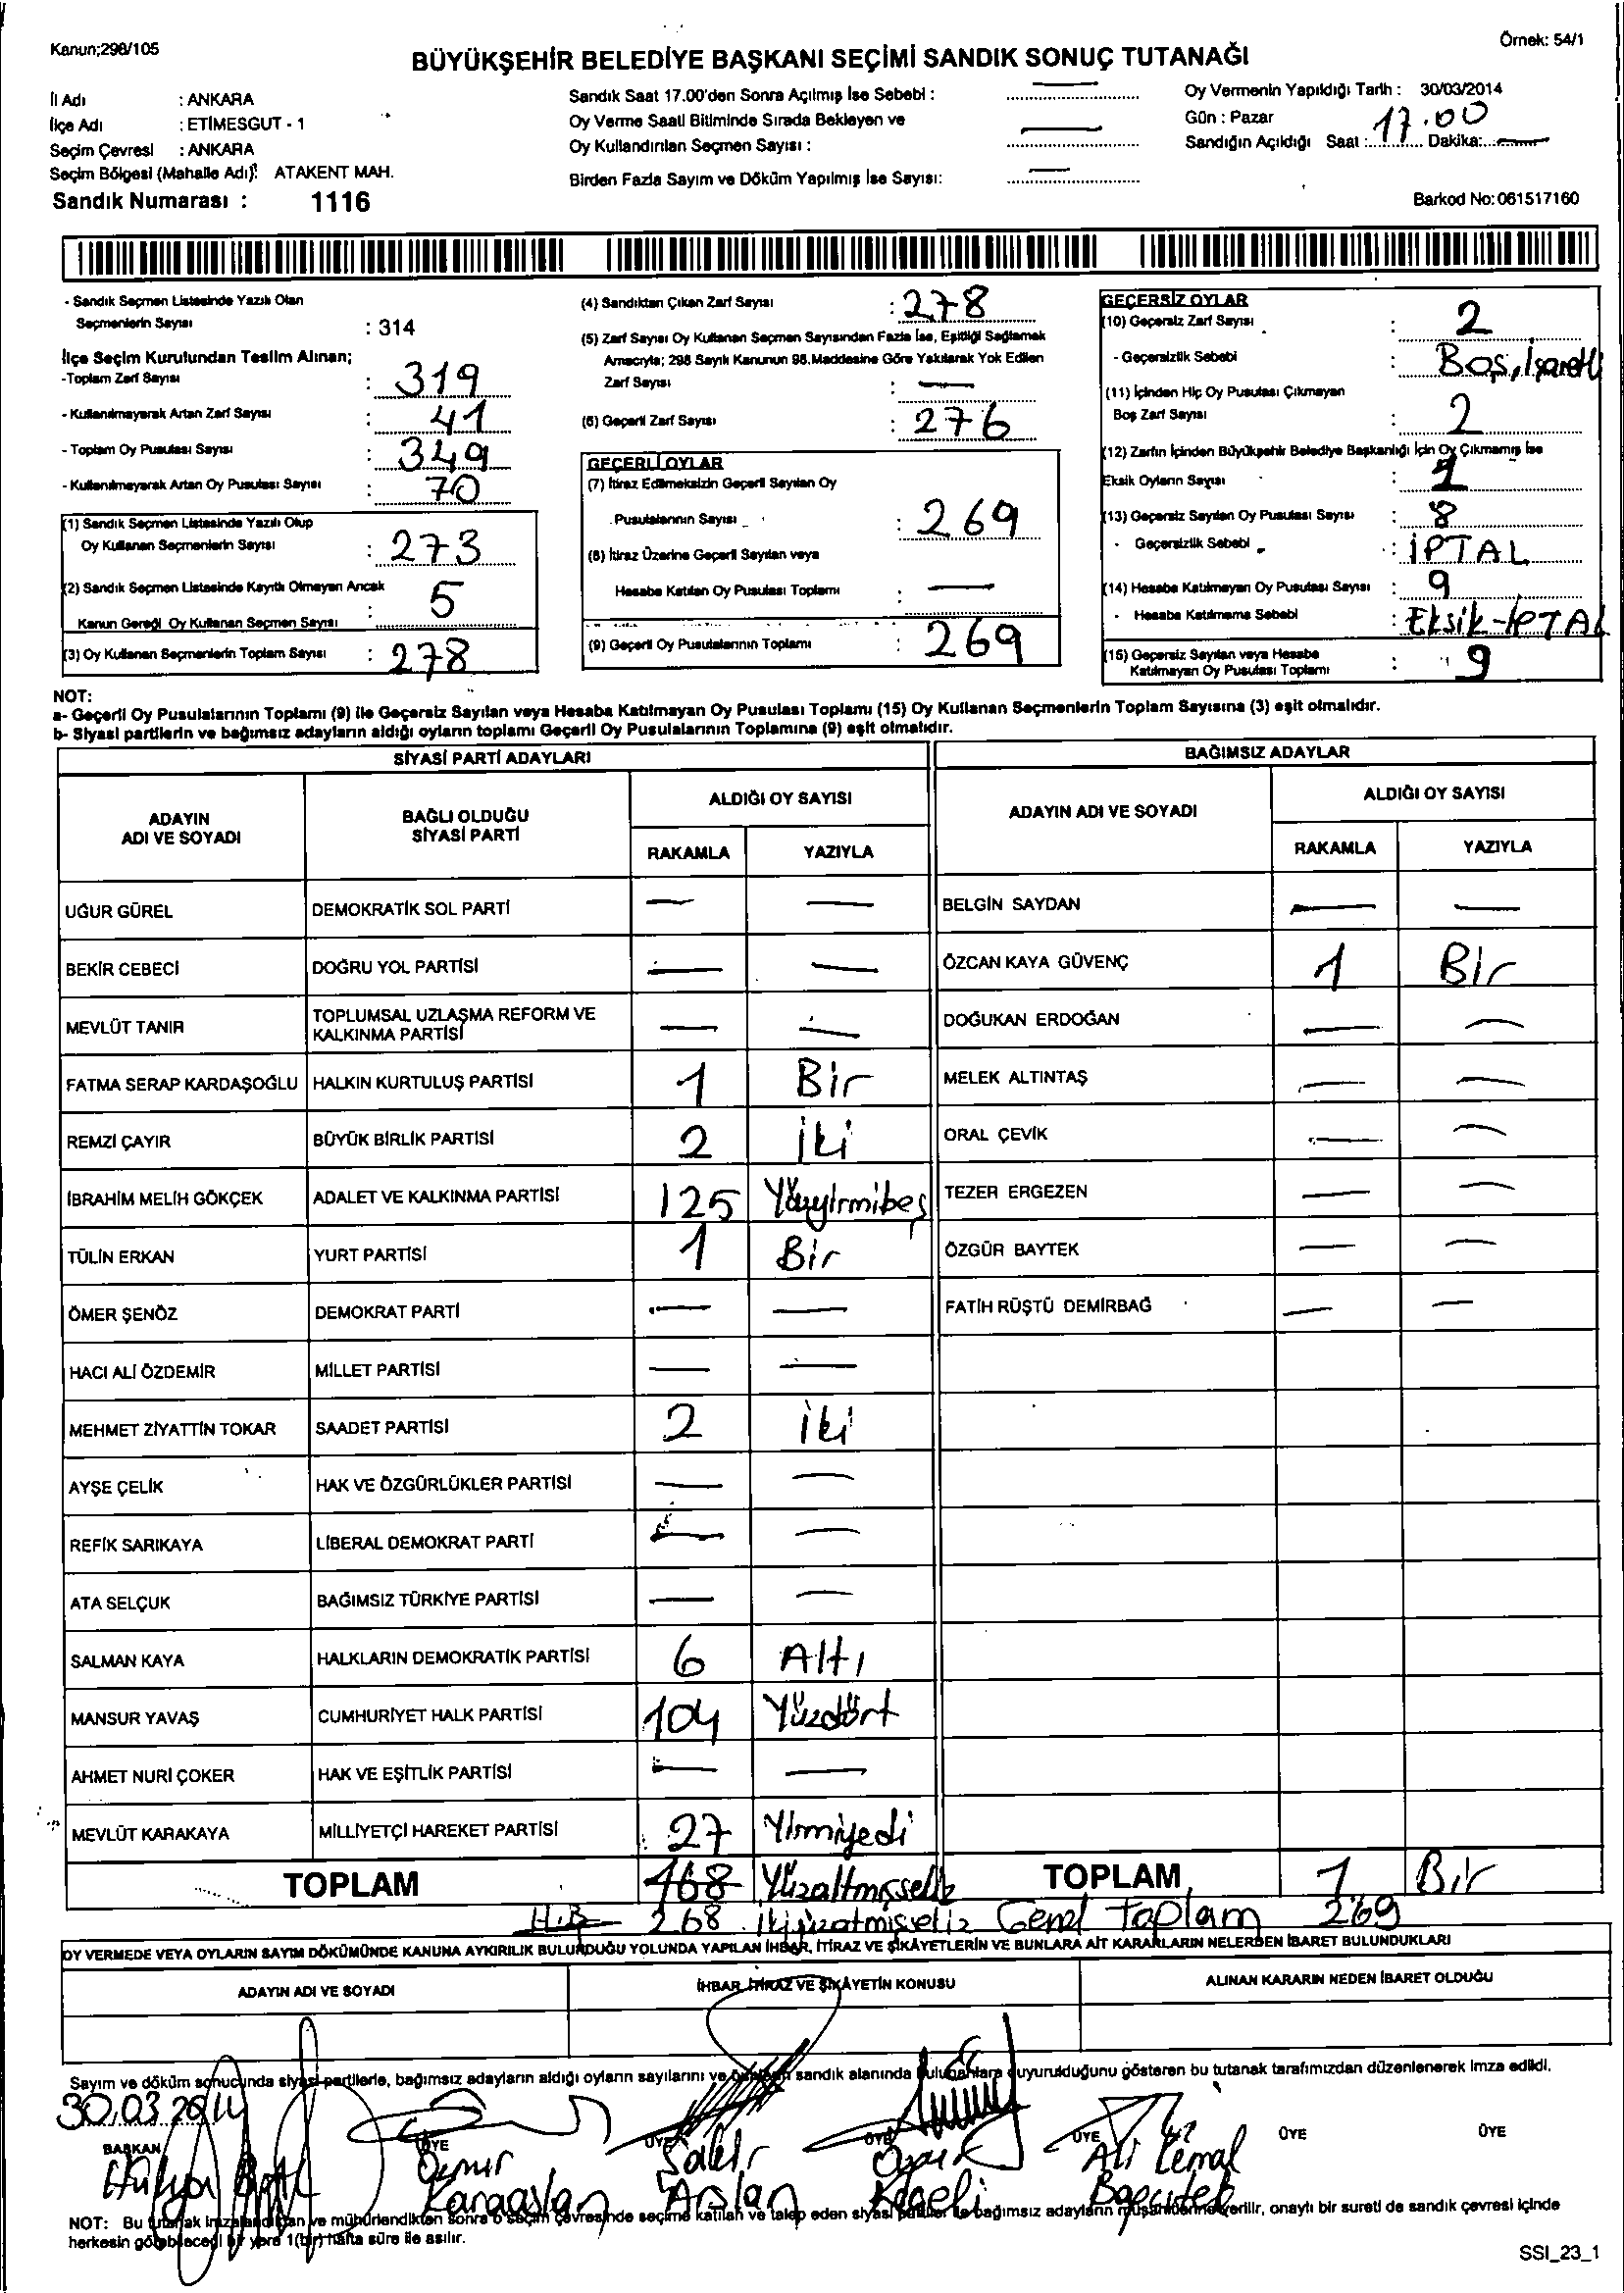 Kanun;298/105
Örnek: 54/1
BÜYÜKŞEHİR BELEDİYE BAŞKANI SEÇİMİ SANDIK SONUÇ TUTANAĞI
İl Adı : ANKARA
İlçe Adı : ETİMESGUT - 1
Seçim Çevresi : ANKARA
Seçim Bölgesi (Mahalle Adı): ATAKENT MAH.
Sandık Numarası : 1116
Sandık Saat 17.00'den Sonra Açılmış İse Sebebi : —
Oy Verme Saati Bitiminde Sırada Bekleyen ve
Oy Kullandırılan Seçmen Sayısı : —
Birden Fazla Sayım ve Döküm Yapılmış İse Sayısı: —
Oy Vermenin Yapıldığı Tarih : 30/03/2014
Gün : Pazar
Sandığın Açıldığı Saat : 17.00 Dakika: —
Barkod No: 061517160
- Sandık Seçmen Listesinde Yazılı Olan
Seçmenlerin Sayısı : 314
İlçe Seçim Kurulundan Teslim Alınan;
-Toplam Zarf Sayısı : 319
- Kullanılmayarak Artan Zarf Sayısı : 41
- Toplam Oy Pusulası Sayısı : 349
- Kullanılmayarak Artan Oy Pusulası Sayısı : 70
(1) Sandık Seçmen Listesinde Yazılı Olup
Oy Kullanan Seçmenlerin Sayısı : 273
(2) Sandık Seçmen Listesinde Kayıtlı Olmayan Ancak
Kanun Gereği Oy Kullanan Seçmen Sayısı : 5
(3) Oy Kullanan Seçmenlerin Toplam Sayısı : 278
(4) Sandıktan Çıkan Zarf Sayısı : 278
(5) Zarf Sayısı Oy Kullanan Seçmen Sayısından Fazla İse, Eşitliği Sağlamak
Amacıyla; 298 Sayılı Kanunun 98.Maddesine Göre Yakılarak Yok Edilen
Zarf Sayısı : —
(6) Geçerli Zarf Sayısı : 276
GEÇERLİ OYLAR
(7) İtiraz Edilmeksizin Geçerli Sayılan Oy
Pusulalarının Sayısı : 269
(8) İtiraz Üzerine Geçerli Sayılan veya
Hesaba Katılan Oy Pusulası Toplamı : —
(9) Geçerli Oy Pusulalarının Toplamı : 269
GEÇERSİZ OYLAR
(10) Geçersiz Zarf Sayısı : 2
- Geçersizlik Sebebi : Boş, İşaretli
(11) İçinden Hiç Oy Pusulası Çıkmayan
Boş Zarf Sayısı : 2
(12) Zarfın İçinden Büyükşehir Belediye Başkanlığı İçin Oy Çıkmamış İse
Eksik Oyların Sayısı : 1
(13) Geçersiz Sayılan Oy Pusulası Sayısı : 8
- Geçersizlik Sebebi : İPTAL
(14) Hesaba Katılmayan Oy Pusulası Sayısı : 9
- Hesaba Katılmama Sebebi : Eksik-İPTAL
(15) Geçersiz Sayılan veya Hesaba
Katılmayan Oy Pusulası Toplamı : 9
NOT:
a- Geçerli Oy Pusulalarının Toplamı (9) ile Geçersiz Sayılan veya Hesaba Katılmayan Oy Pusulası Toplamı (15) Oy Kullanan Seçmenlerin Toplam Sayısına (3) eşit olmalıdır.
b- Siyasi partilerin ve bağımsız adayların aldığı oyların toplamı Geçerli Oy Pusulalarının Toplamına (9) eşit olmalıdır.
SİYASİ PARTİ ADAYLARI
ADAYIN ADI VE SOYADI | BAĞLI OLDUĞU SİYASİ PARTİ | ALDIĞI OY SAYISI | RAKAMLA | YAZIYLA
UĞUR GÜREL DEMOKRATİK SOL PARTİ — —
BEKİR CEBECİ DOĞRU YOL PARTİSİ — —
MEVLÜT TANIR TOPLUMSAL UZLAŞMA REFORM VE KALKINMA PARTİSİ — —
FATMA SERAP KARDAŞOĞLU HALKIN KURTULUŞ PARTİSİ 1 Bir
REMZİ ÇAYIR BÜYÜK BİRLİK PARTİSİ 2 İki
İBRAHİM MELİH GÖKÇEK ADALET VE KALKINMA PARTİSİ 125 Yüzyirmibeş
TÜLİN ERKAN YURT PARTİSİ 1 Bir
ÖMER ŞENÖZ DEMOKRAT PARTİ — —
HACI ALİ ÖZDEMİR MİLLET PARTİSİ — —
MEHMET ZİYATTİN TOKAR SAADET PARTİSİ 2 İki
AYŞE ÇELİK HAK VE ÖZGÜRLÜKLER PARTİSİ — —
REFİK SARIKAYA LİBERAL DEMOKRAT PARTİ — —
ATA SELÇUK BAĞIMSIZ TÜRKİYE PARTİSİ — —
SALMAN KAYA HALKLARIN DEMOKRATİK PARTİSİ 6 Altı
MANSUR YAVAŞ CUMHURİYET HALK PARTİSİ 104 Yüzdört
AHMET NURİ ÇOKER HAK VE EŞİTLİK PARTİSİ — —
MEVLÜT KARAKAYA MİLLİYETÇİ HAREKET PARTİSİ 27 Yirmiyedi
TOPLAM 168 Yüzaltmışsekiz
BAĞIMSIZ ADAYLAR
ADAYIN ADI VE SOYADI | ALDIĞI OY SAYISI | RAKAMLA | YAZIYLA
BELGİN SAYDAN — —
ÖZCAN KAYA GÜVENÇ 1 Bir
DOĞUKAN ERDOĞAN — —
MELEK ALTINTAŞ — —
ORAL ÇEVİK — —
TEZER ERGEZEN — —
ÖZGÜR BAYTEK — —
FATİH RÜŞTÜ DEMİRBAĞ — —
TOPLAM 1 Bir
H.B 268 Genel Toplam 269
OY VERMEDE VEYA OYLARIN SAYIM DÖKÜMÜNDE KANUNA AYKIRILIK BULUNDUĞU YOLUNDA YAPILAN İHBAR, İTİRAZ VE ŞİKÂYETLERİN VE BUNLARA AİT KARARLARIN NELERDEN İBARET BULUNDUKLARI
ADAYIN ADI VE SOYADI | İHBAR, İTİRAZ VE ŞİKÂYETİN KONUSU | ALINAN KARARIN NEDEN İBARET OLDUĞU
Sayım ve döküm sonucunda siyasi partilerle, bağımsız adayların aldığı oyların sayılarını ve sandık alanında bulunanlara duyurulduğunu gösteren bu tutanak tarafımızdan düzenlenerek imza edildi.
30.03.2014
BAŞKAN ÜYE ÜYE ÜYE ÜYE ÜYE ÜYE
Hülya
Karaaslan
Arslan
Ali Kemal
NOT: Bu tutanak imzalandıktan ve mühürlendikten sonra o seçim çevresinde seçime katılan ve talep eden siyasi partiler ile bağımsız adayların müşahitlerine verilir, onaylı bir sureti de sandık çevresi içinde
herkesin görebileceği bir yere 1(bir) hafta süre ile asılır.
SSI_23_1